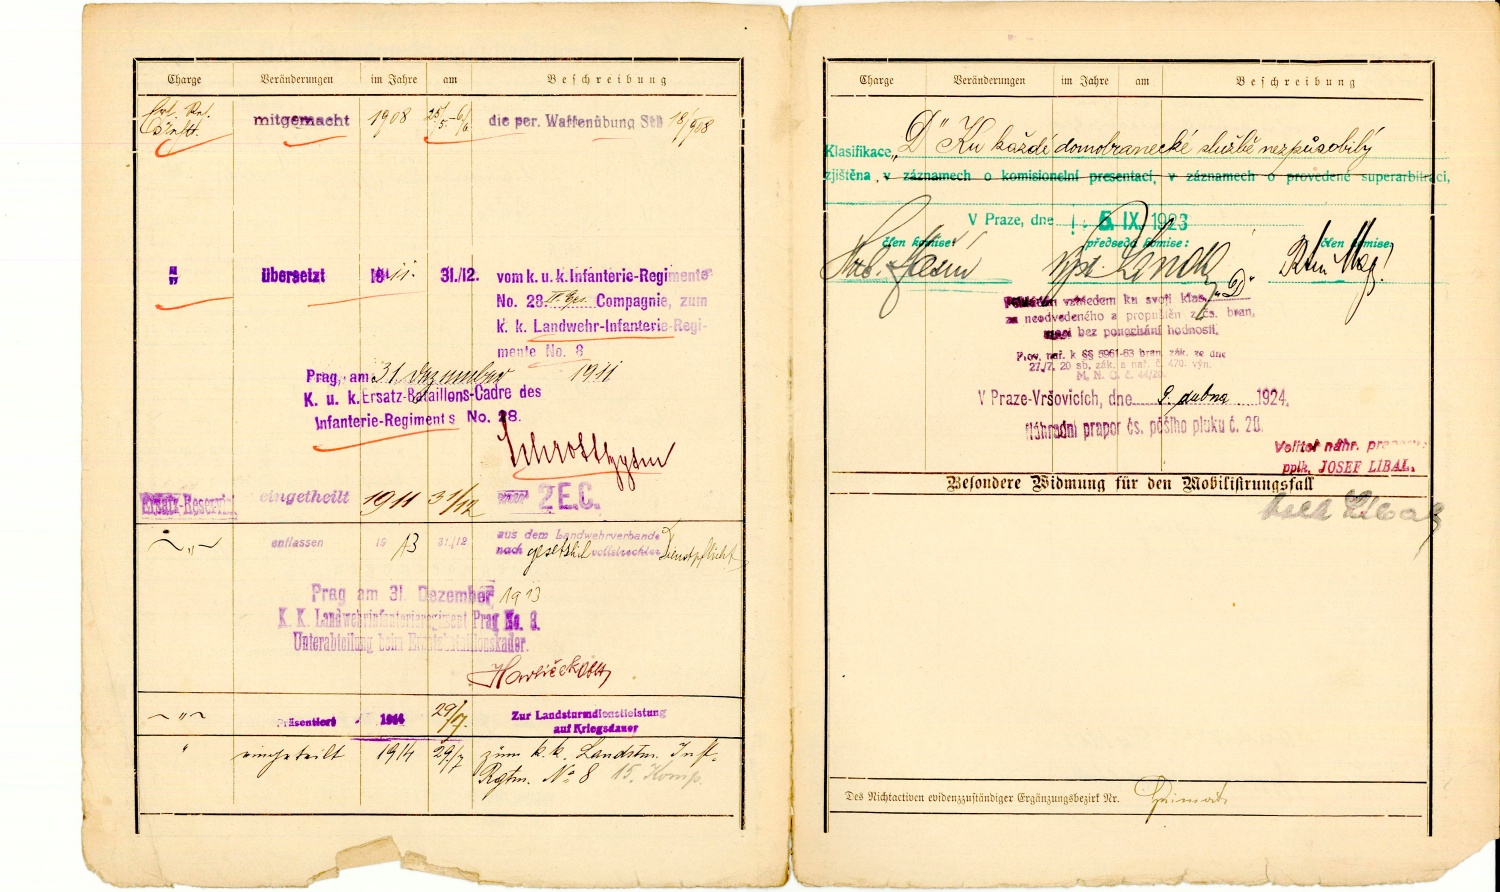 Charge Veränderungen im Jahre am Beschreibung
mitgemacht 1908 25/5.-6/6. die per. Waffenübung St 18/908
" übersetzt 1911. 31./12. vom k. u. k. Infanterie-Regimente
No. 28. Compagnie, zum
k. k. Landwehr-Infanterie-Regi-
mente No. 8
Prag, am 31. Dezember 1911
K. u. k. Ersatz-Bataillons-Cadre des
Infanterie-Regiments No. 28.
Ersatz-Reservist eingetheilt 1911 31/12 2 E.C.
~ " ~ entlassen 1913 31./12 aus dem Landwehrverbande
nach gesetzlich vollstreckter Dienstpflicht
Prag am 31. Dezember 1913
K. K. Landwehrinfanterieregiment Prag No. 8.
Unterabteilung beim Ersatzbataillonskader.
Havlíček Oblt
~ " ~ Präsentiert 1914 29/7. Zur Landsturmdienstleistung
auf Kriegsdauer
" eingeteilt 1914 29/7 zum k. k. Landstm. Inft.
Rgtm. No 8 15. Komp.
Charge Veränderungen im Jahre am Beschreibung
Klasifikace „D" Ku každé domobranecké službě nezpůsobilý
zjištěna v záznamech o komisionelní presentaci, v záznamech o provedené superarbitraci,
V Praze, dne 5. IX. 1923
člen komise: předseda komise: člen komise:
vzhledem ku svojí klas. „D"
za neodvedeného a propuštěn z čs. bran.
moci bez ponechání hodnosti.
Prov. nař. k §§ 5961-63 bran. zák. ze dne
27./7. 20 sb. zák. a nař. č. 470. výn.
M. N. O. č. 44/20
V Praze-Vršovicích, dne 9. dubna 1924.
Náhradní prapor čs. pěšího pluku č. 28.
Velitel náhr. praporu:
pplk. JOSEF LÍBAL.
Besondere Widmung für den Mobilisirungsfall
Des Nichtactiven evidenzzuständiger Ergänzungsbezirk Nr.